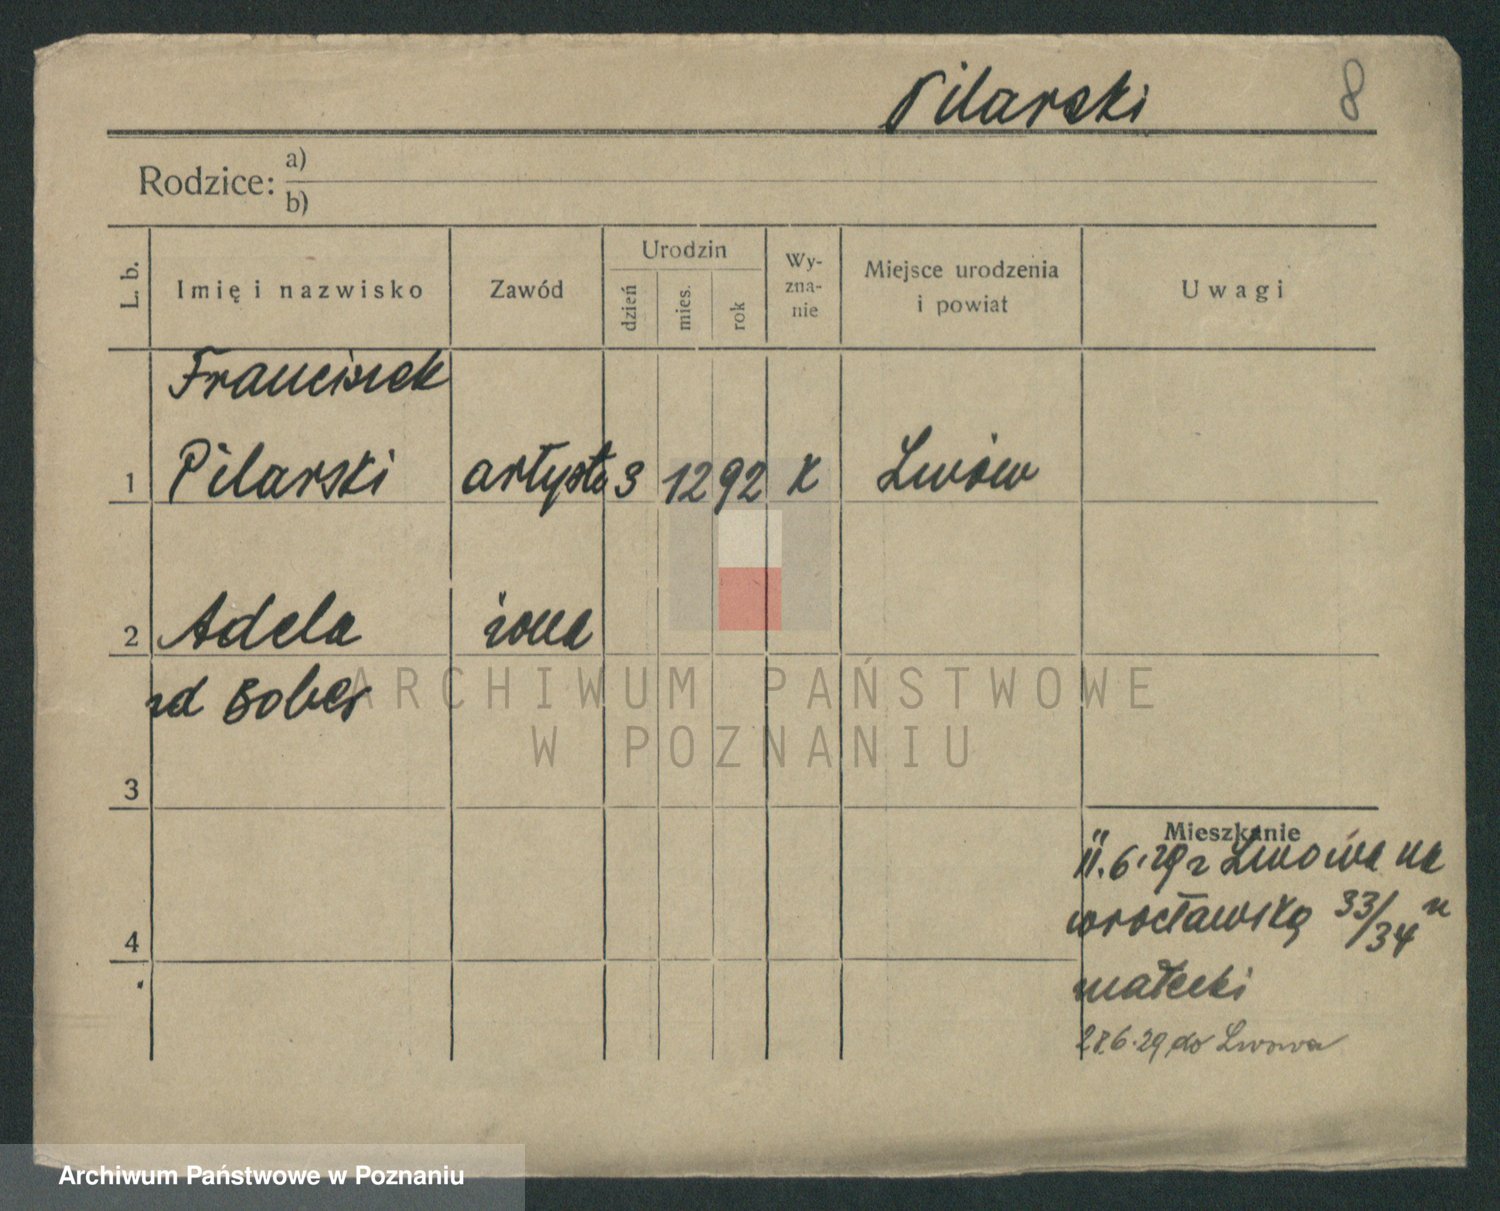 Pilarski 8
Rodzice: a)
b)
L. b.
Imię i nazwisko
Zawód
Urodzin
dzień
mies.
rok
Wy-
zna-
nie
Miejsce urodzenia
i powiat
Uwagi
Franciszek
1 Pilarski artysta 3 12 92 K Lwów
2 Adela żona
zd Bober
3
4
Mieszkanie
11.6.29 z Lwowa na
wrocławską 33/34 u
małecki
28.6.29 do Lwowa
ARCHIWUM PAŃSTWOWE
W POZNANIU
Archiwum Państwowe w Poznaniu